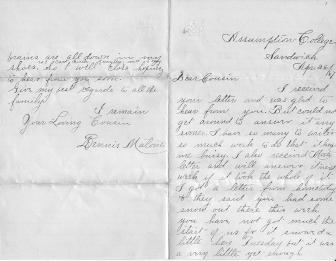 Assumption College
Sandwich
Dear Cousin
I received
your letter and was glad to
hear from you. But could not
get around to answer it any
sooner. I have so many to write
so much work to do that it keeps
me busy. I also received
letter and will answer it
week if it took the whole of it
I got a letter from
they said you had some
snow out there this week
you have not got much the
start of us for it snowed a
little here Tuesday but it was
a very little yet enough
brains are all down in my
shoes. So I will close hoping
to hear from you soon.
Give my best regards to all the
family
I remain
Your Loving Cousin
Dennis Malone